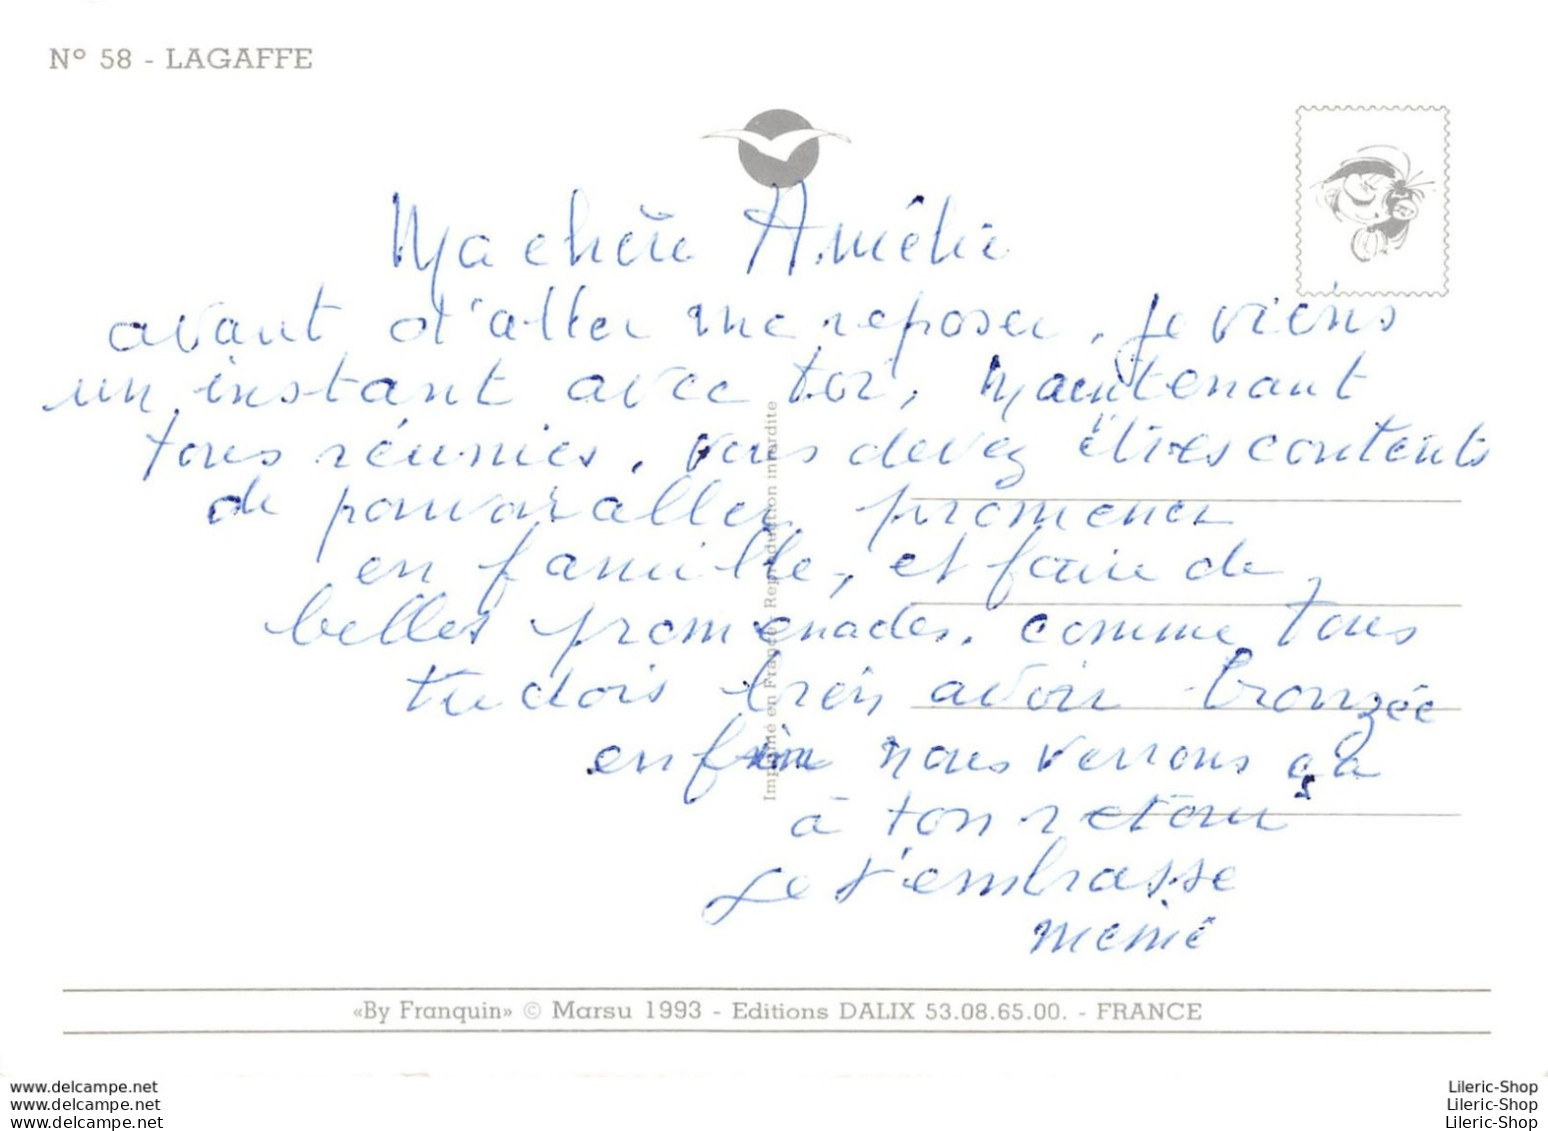 N° 58 - LAGAFFE
Ma chère Amélie
avant d'aller me reposer, je viens
un instant avec toi, maintenant
tous réunies, vous devez êtres contents
de pouvoir aller promener
en famille, et faire de
belles promenades. comme tous
tu dois bien avoir bronzée
enfin nous verrons ça
à ton retour
Je t'embrasse
mémé
Imprimé en France - Reproduction interdite
«By Franquin» © Marsu 1993 - Editions DALIX 53.08.65.00. - FRANCE
www.delcampe.net
www.delcampe.net
www.delcampe.net
Lileric-Shop
Lileric-Shop
Lileric-Shop